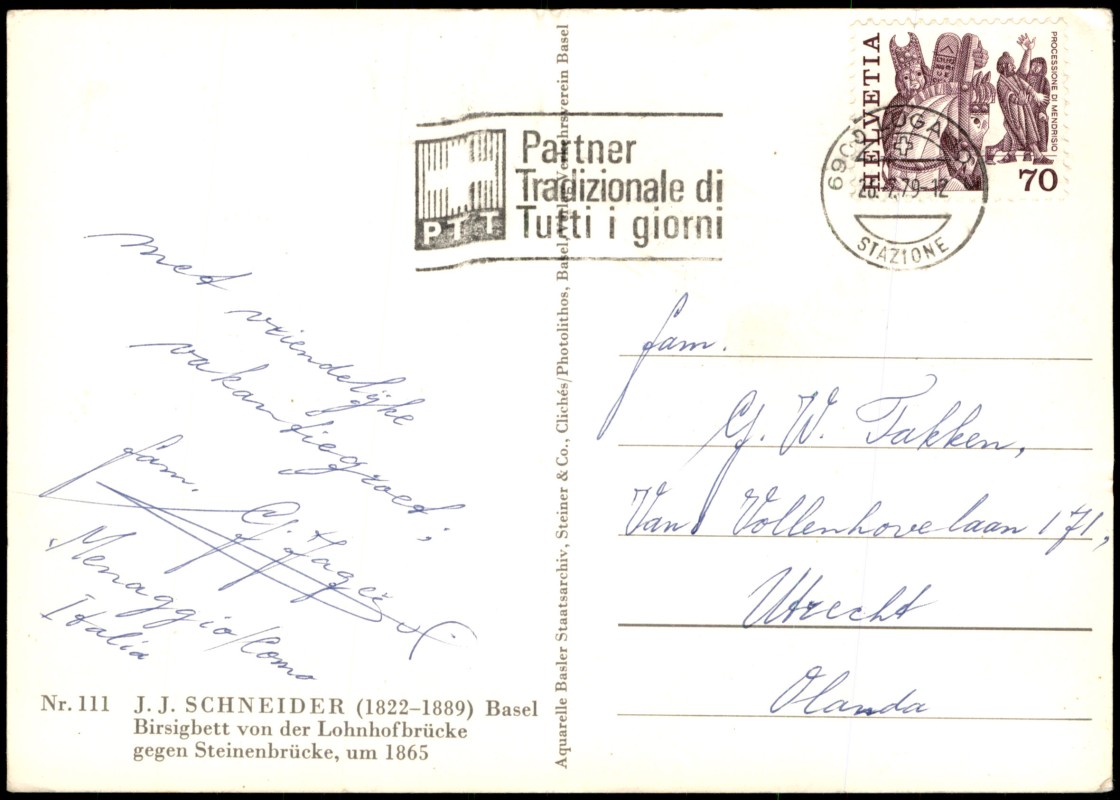 HELVETIA
PROCESSIONE DI MENDRISIO
70
LUGANO
79-12
STAZIONE
PTT
Partner
Tradizionale di
Tutti i giorni
met vriendelijke
vakantiegroet,
fam.
Menaggio/Como
Italia
fam.
G. W. Takken,
Van Vollenhovelaan 171,
Utrecht
Olanda
Nr. 111 J. J. SCHNEIDER (1822–1889) Basel
Birsigbett von der Lohnhofbrücke
gegen Steinenbrücke, um 1865
Aquarelle Basler Staatsarchiv, Steiner & Co., Clichés/Photolithos, Basel, Verkehrsverein Basel